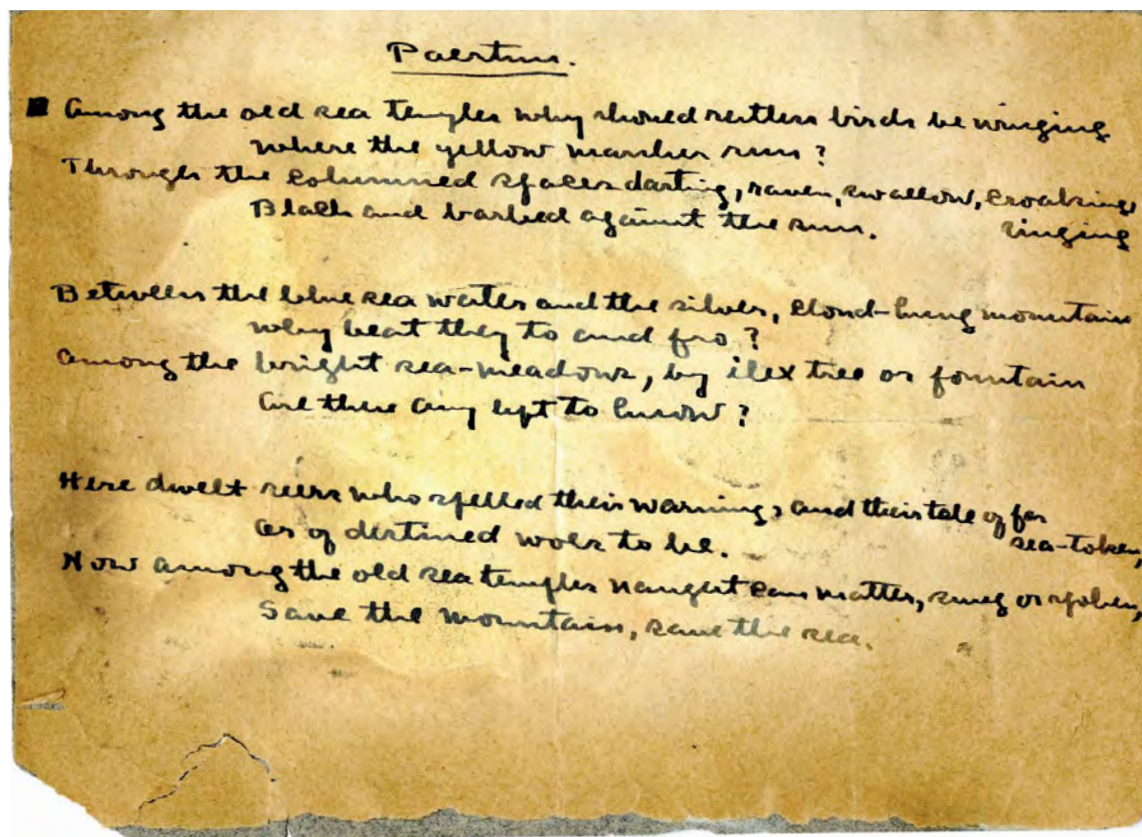 Paestum.
Among the old sea temples why should restless birds be winging
Where the yellow marshes run?
Through the columned spaces darting, raven, swallow, croaking,
singing
Black and barbed against the sun.
Between the blue sea water and the silver, cloud-hung mountain
Why beat they to and fro?
Among the bright sea-meadows, by ilex tree or fountain
Are there any left to know?
Here dwelt seers who spelled their warning, and their tale of far
sea-token,
Or of destined woes to be.
Now among the old sea temples naught can matter, sung or spoken,
Save the mountain, save the sea.